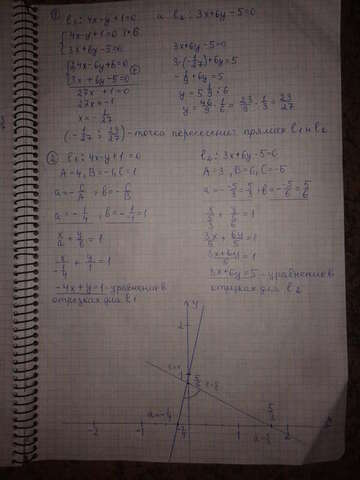 ① l₁: 4x-y+1=0 и l₂: 3x+6y-5=0
{4x-y+1=0 |·6
{3x+6y-5=0
{24x-6y+6=0
{3x+6y-5=0 (+)
27x+1=0
27x=-1
x=-1/27
3x+6y-5=0
3·(-1/27)+6y=5
-1/9+6y=5
y=5 1/9 : 6
y=46/9·1/6=23/9·1/3=23/27
(-1/27; 23/27)-точка пересечения прямых l₁ и l₂
② l₁: 4x-y+1=0
A=4, B=-1, C=1
a=-C/A; b=-C/B
a=-1/4; b=-1/-1=1
x/a+y/b=1
x/-1/4+y/1=1
-4x+y=1-уравнение в
отрезках для l₁
l₂: 3x+6y-5=0
A=3, B=6, C=-5
a=-(-5/3)=5/3; b=-(-5/6)=5/6
3x/5+6y/5=1
3x+6y/5=1
3x+6y=5-уравнение в
отрезках для l₂
y
2
-2 -1 2